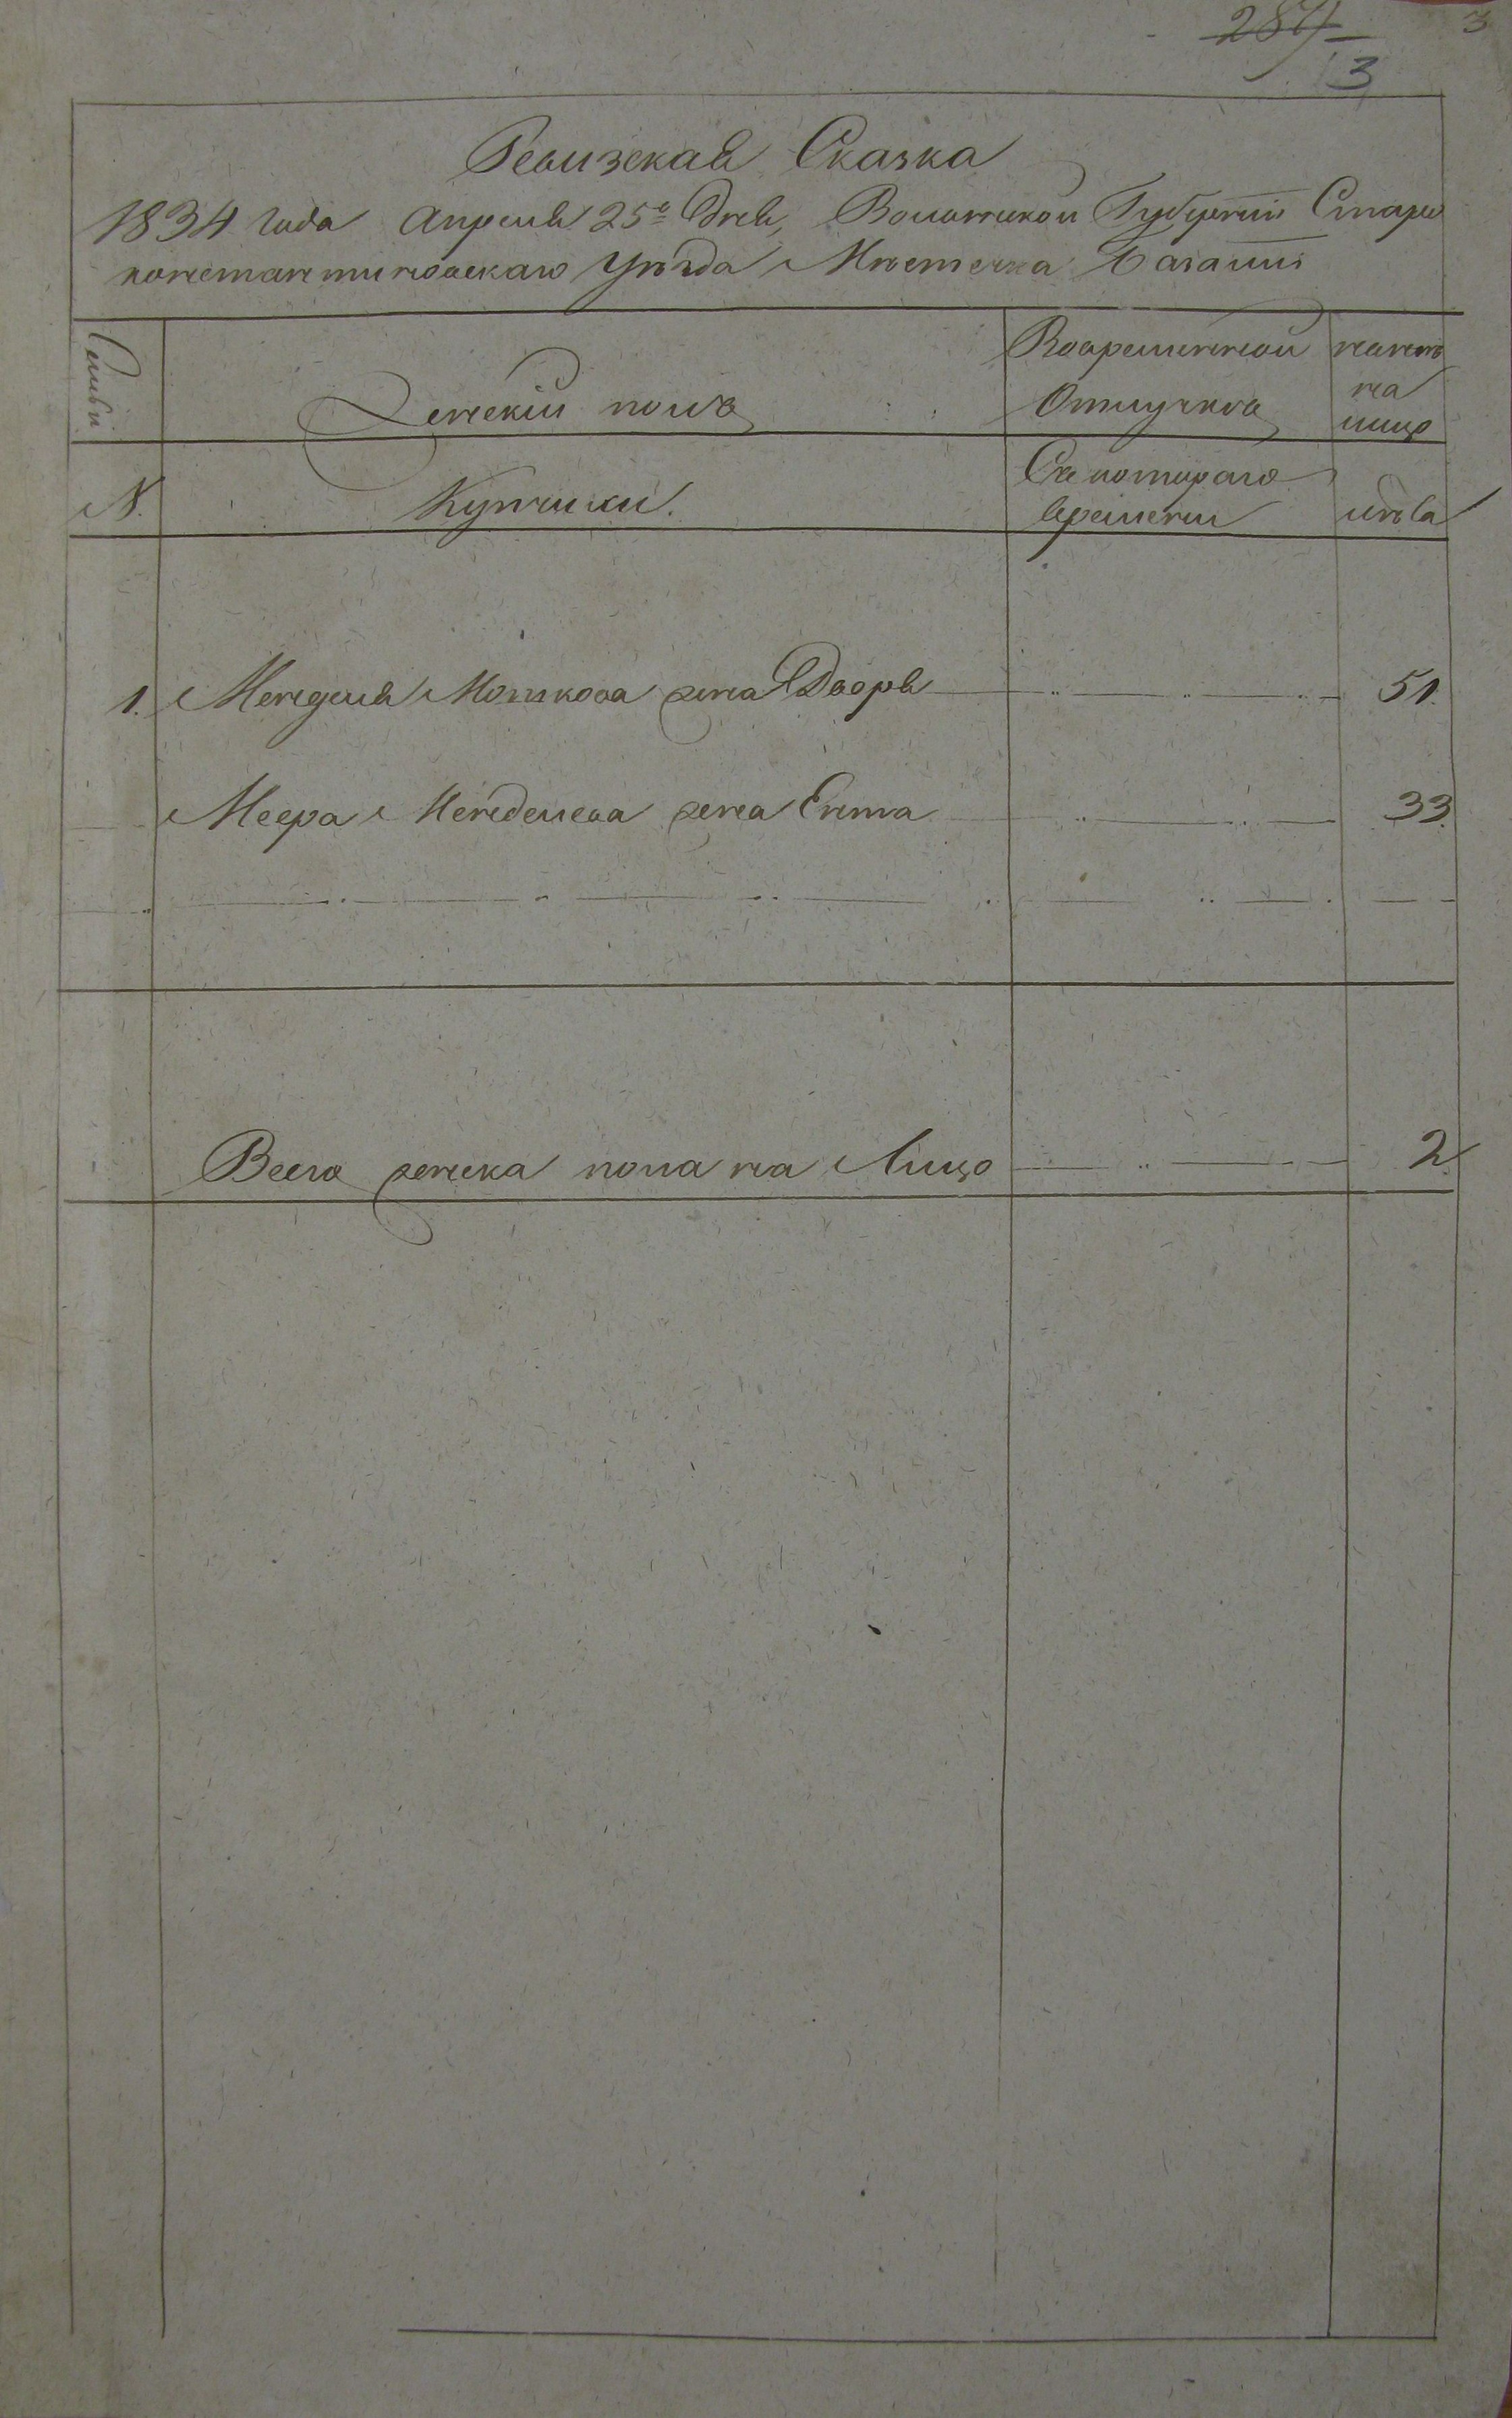 287
3
3
Ревизская Сказка
1834 года Апреля 25го Дня, Волынской Губернии Старо
константиновскаго Уѣзда Мѣстечка Базалии
Семьи
Женский полъ
Во временной
Отлучкѣ
на
лицо
N.
Купчихи.
Съ котораго
времени
лѣта
1. Менделя Мошкова жена Дворя 51.
Меера Менделева жена Ента 33.
Всего женска пола на Лицо 2.